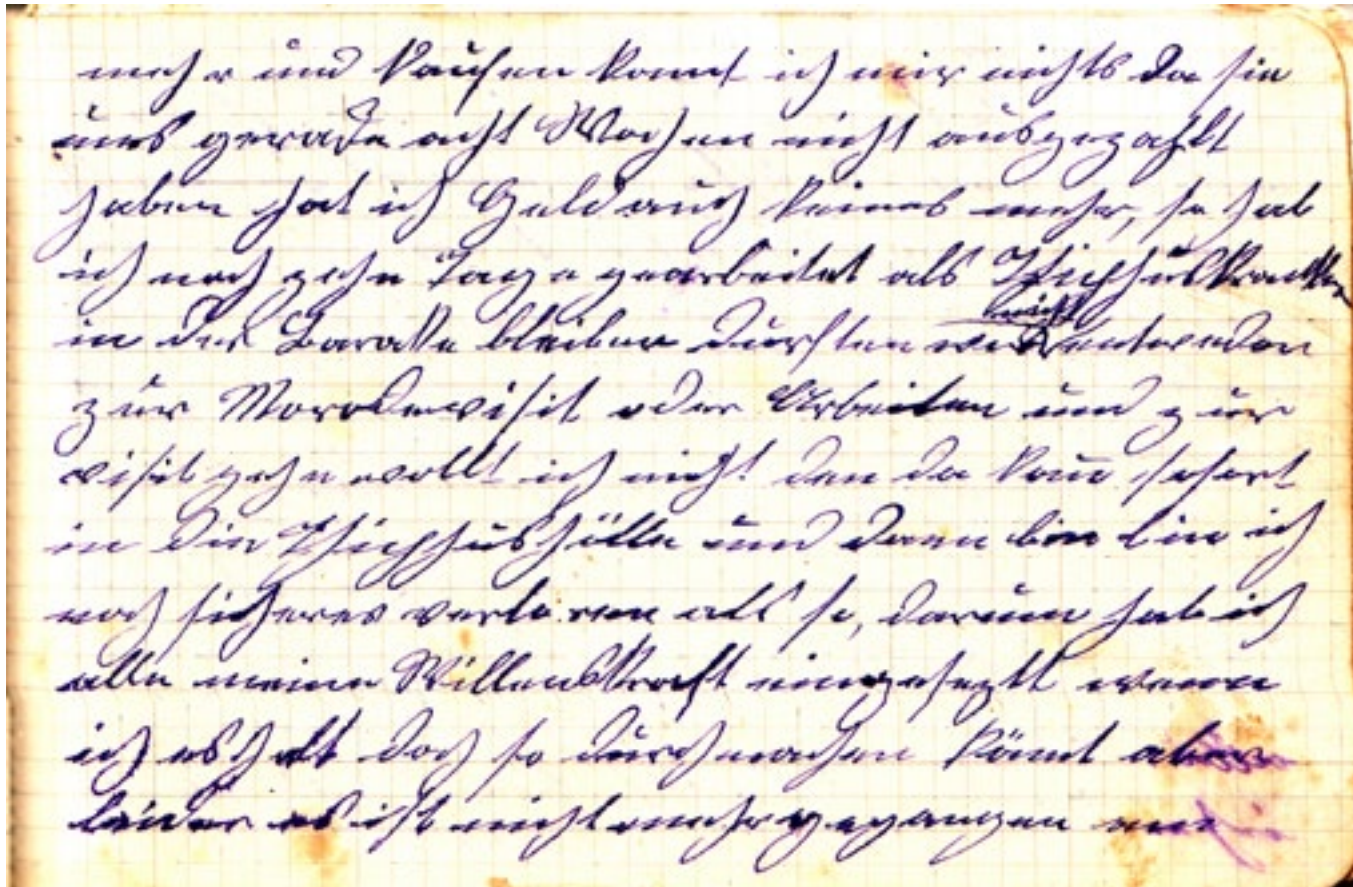 mehr und kaufen konnt ich mir nichts da sie
uns gerade acht Wochen nicht ausgezahlt
haben hat ich Geld auch keines mehr, so hab
ich noch zehn Tage gearbeitet als Thichhuskranker
in der Baracke bleiben durften wir nicht entweder
zur Marodevisit oder Arbeiten und zur
visit gehn wollt ich nicht den da kam sofort
in die Thichhushölle und dann bin bin ich
noch sicherer verloren als so, darum hab ich
alle meine Willenskraft eingesetzt wenn
ich es halt doch so durchmachen könnt aber
leider es ist nicht mehr gegangen